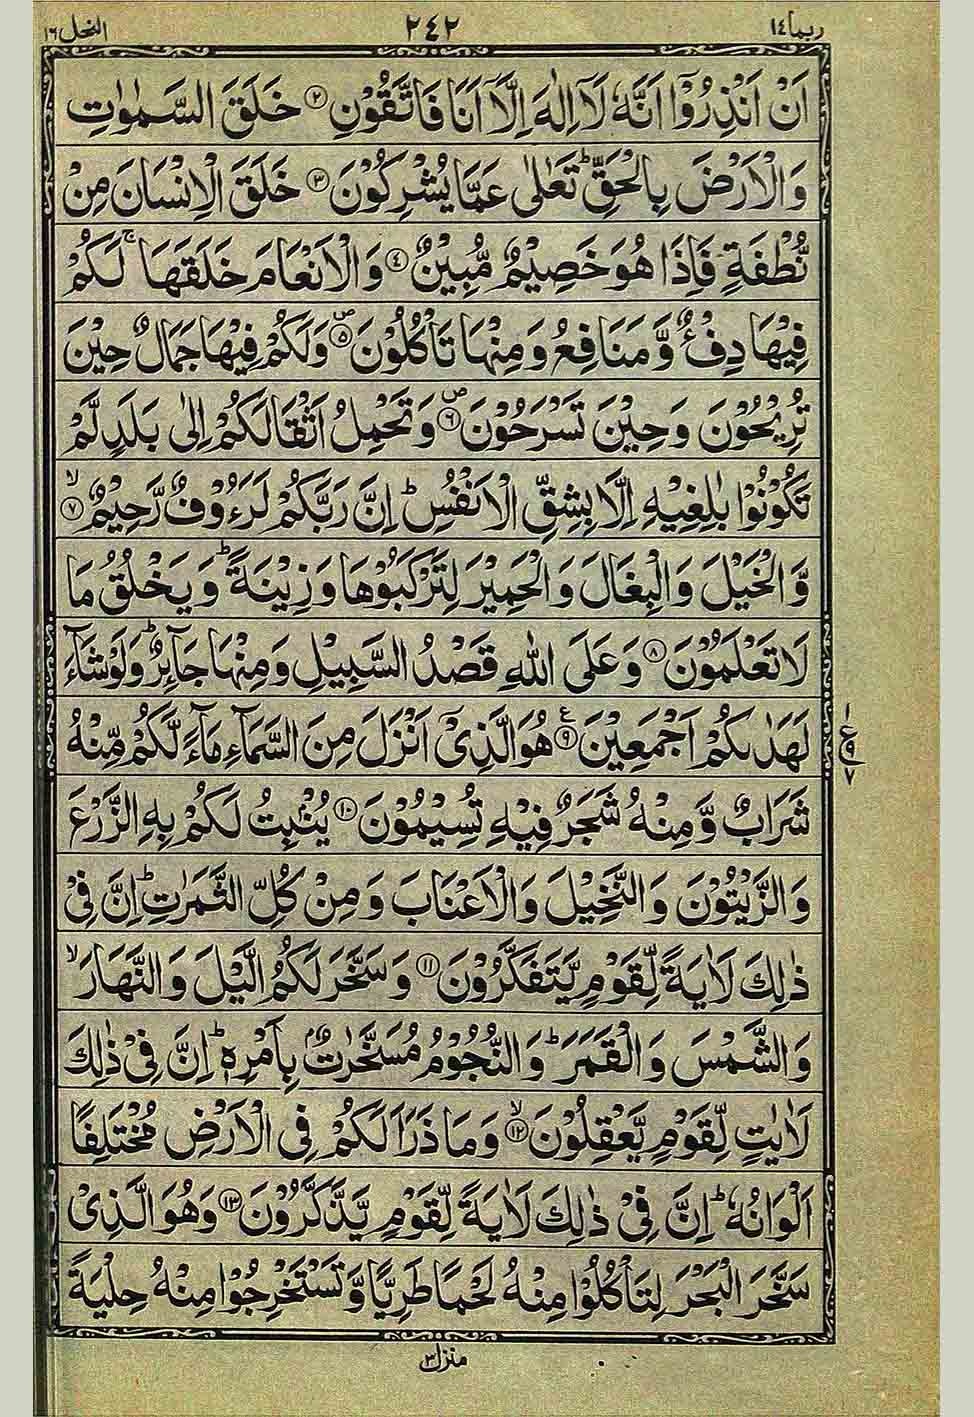 ربما ١٤ ٢٤٢ النحل ١٦
اَنْ اَنْذِرُوْۤا اَنَّهٗ لَاۤ اِلٰهَ اِلَّاۤ اَنَا فَاتَّقُوْنِ ۝٢ خَلَقَ السَّمٰوٰتِ
وَالْاَرْضَ بِالْحَقِّؕ تَعٰلٰى عَمَّا يُشْرِكُوْنَ ۝٣ خَلَقَ الْاِنْسَانَ مِنْ
نُّطْفَةٍ فَاِذَا هُوَ خَصِيْمٌ مُّبِيْنٌ ۝٤ وَالْاَنْعَامَ خَلَقَهَاۚ لَكُمْ
فِيْهَا دِفْءٌ وَّمَنَافِعُ وَمِنْهَا تَاْكُلُوْنَ۪ ۝٥ وَلَكُمْ فِيْهَا جَمَالٌ حِيْنَ
تُرِيْحُوْنَ وَحِيْنَ تَسْرَحُوْنَ۪ ۝٦ وَتَحْمِلُ اَثْقَالَكُمْ اِلٰى بَلَدٍ لَّمْ
تَكُوْنُوْا بٰلِغِيْهِ اِلَّا بِشِقِّ الْاَنْفُسِؕ اِنَّ رَبَّكُمْ لَرَءُوْفٌ رَّحِيْمٌۙ ۝٧
وَّالْخَيْلَ وَالْبِغَالَ وَالْحَمِيْرَ لِتَرْكَبُوْهَا وَزِيْنَةًؕ وَيَخْلُقُ مَا
لَا تَعْلَمُوْنَ ۝٨ وَعَلَى اللّٰهِ قَصْدُ السَّبِيْلِ وَمِنْهَا جَآئِرٌؕ وَلَوْ شَآءَ
لَهَدٰىكُمْ اَجْمَعِيْنَ ۝٩ هُوَ الَّذِىْۤ اَنْزَلَ مِنَ السَّمَآءِ مَآءً لَّكُمْ مِّنْهُ
شَرَابٌ وَّمِنْهُ شَجَرٌ فِيْهِ تُسِيْمُوْنَ ۝١٠ يُنْۢبِتُ لَكُمْ بِهِ الزَّرْعَ
وَالزَّيْتُوْنَ وَالنَّخِيْلَ وَالْاَعْنَابَ وَمِنْ كُلِّ الثَّمَرٰتِؕ اِنَّ فِىْ
ذٰلِكَ لَاٰيَةً لِّقَوْمٍ يَّتَفَكَّرُوْنَ ۝١١ وَسَخَّرَ لَكُمُ الَّيْلَ وَالنَّهَارَۙ
وَالشَّمْسَ وَالْقَمَرَؕ وَالنُّجُوْمُ مُسَخَّرٰتٌۢ بِاَمْرِهٖؕ اِنَّ فِىْ ذٰلِكَ
لَاٰيٰتٍ لِّقَوْمٍ يَّعْقِلُوْنَۙ ۝١٢ وَمَا ذَرَاَ لَكُمْ فِى الْاَرْضِ مُخْتَلِفًا
اَلْوَانُهٗؕ اِنَّ فِىْ ذٰلِكَ لَاٰيَةً لِّقَوْمٍ يَّذَّكَّرُوْنَ ۝١٣ وَهُوَ الَّذِىْ
سَخَّرَ الْبَحْرَ لِتَاْكُلُوْا مِنْهُ لَحْمًا طَرِيًّا وَّتَسْتَخْرِجُوْا مِنْهُ حِلْيَةً
منزل ٣